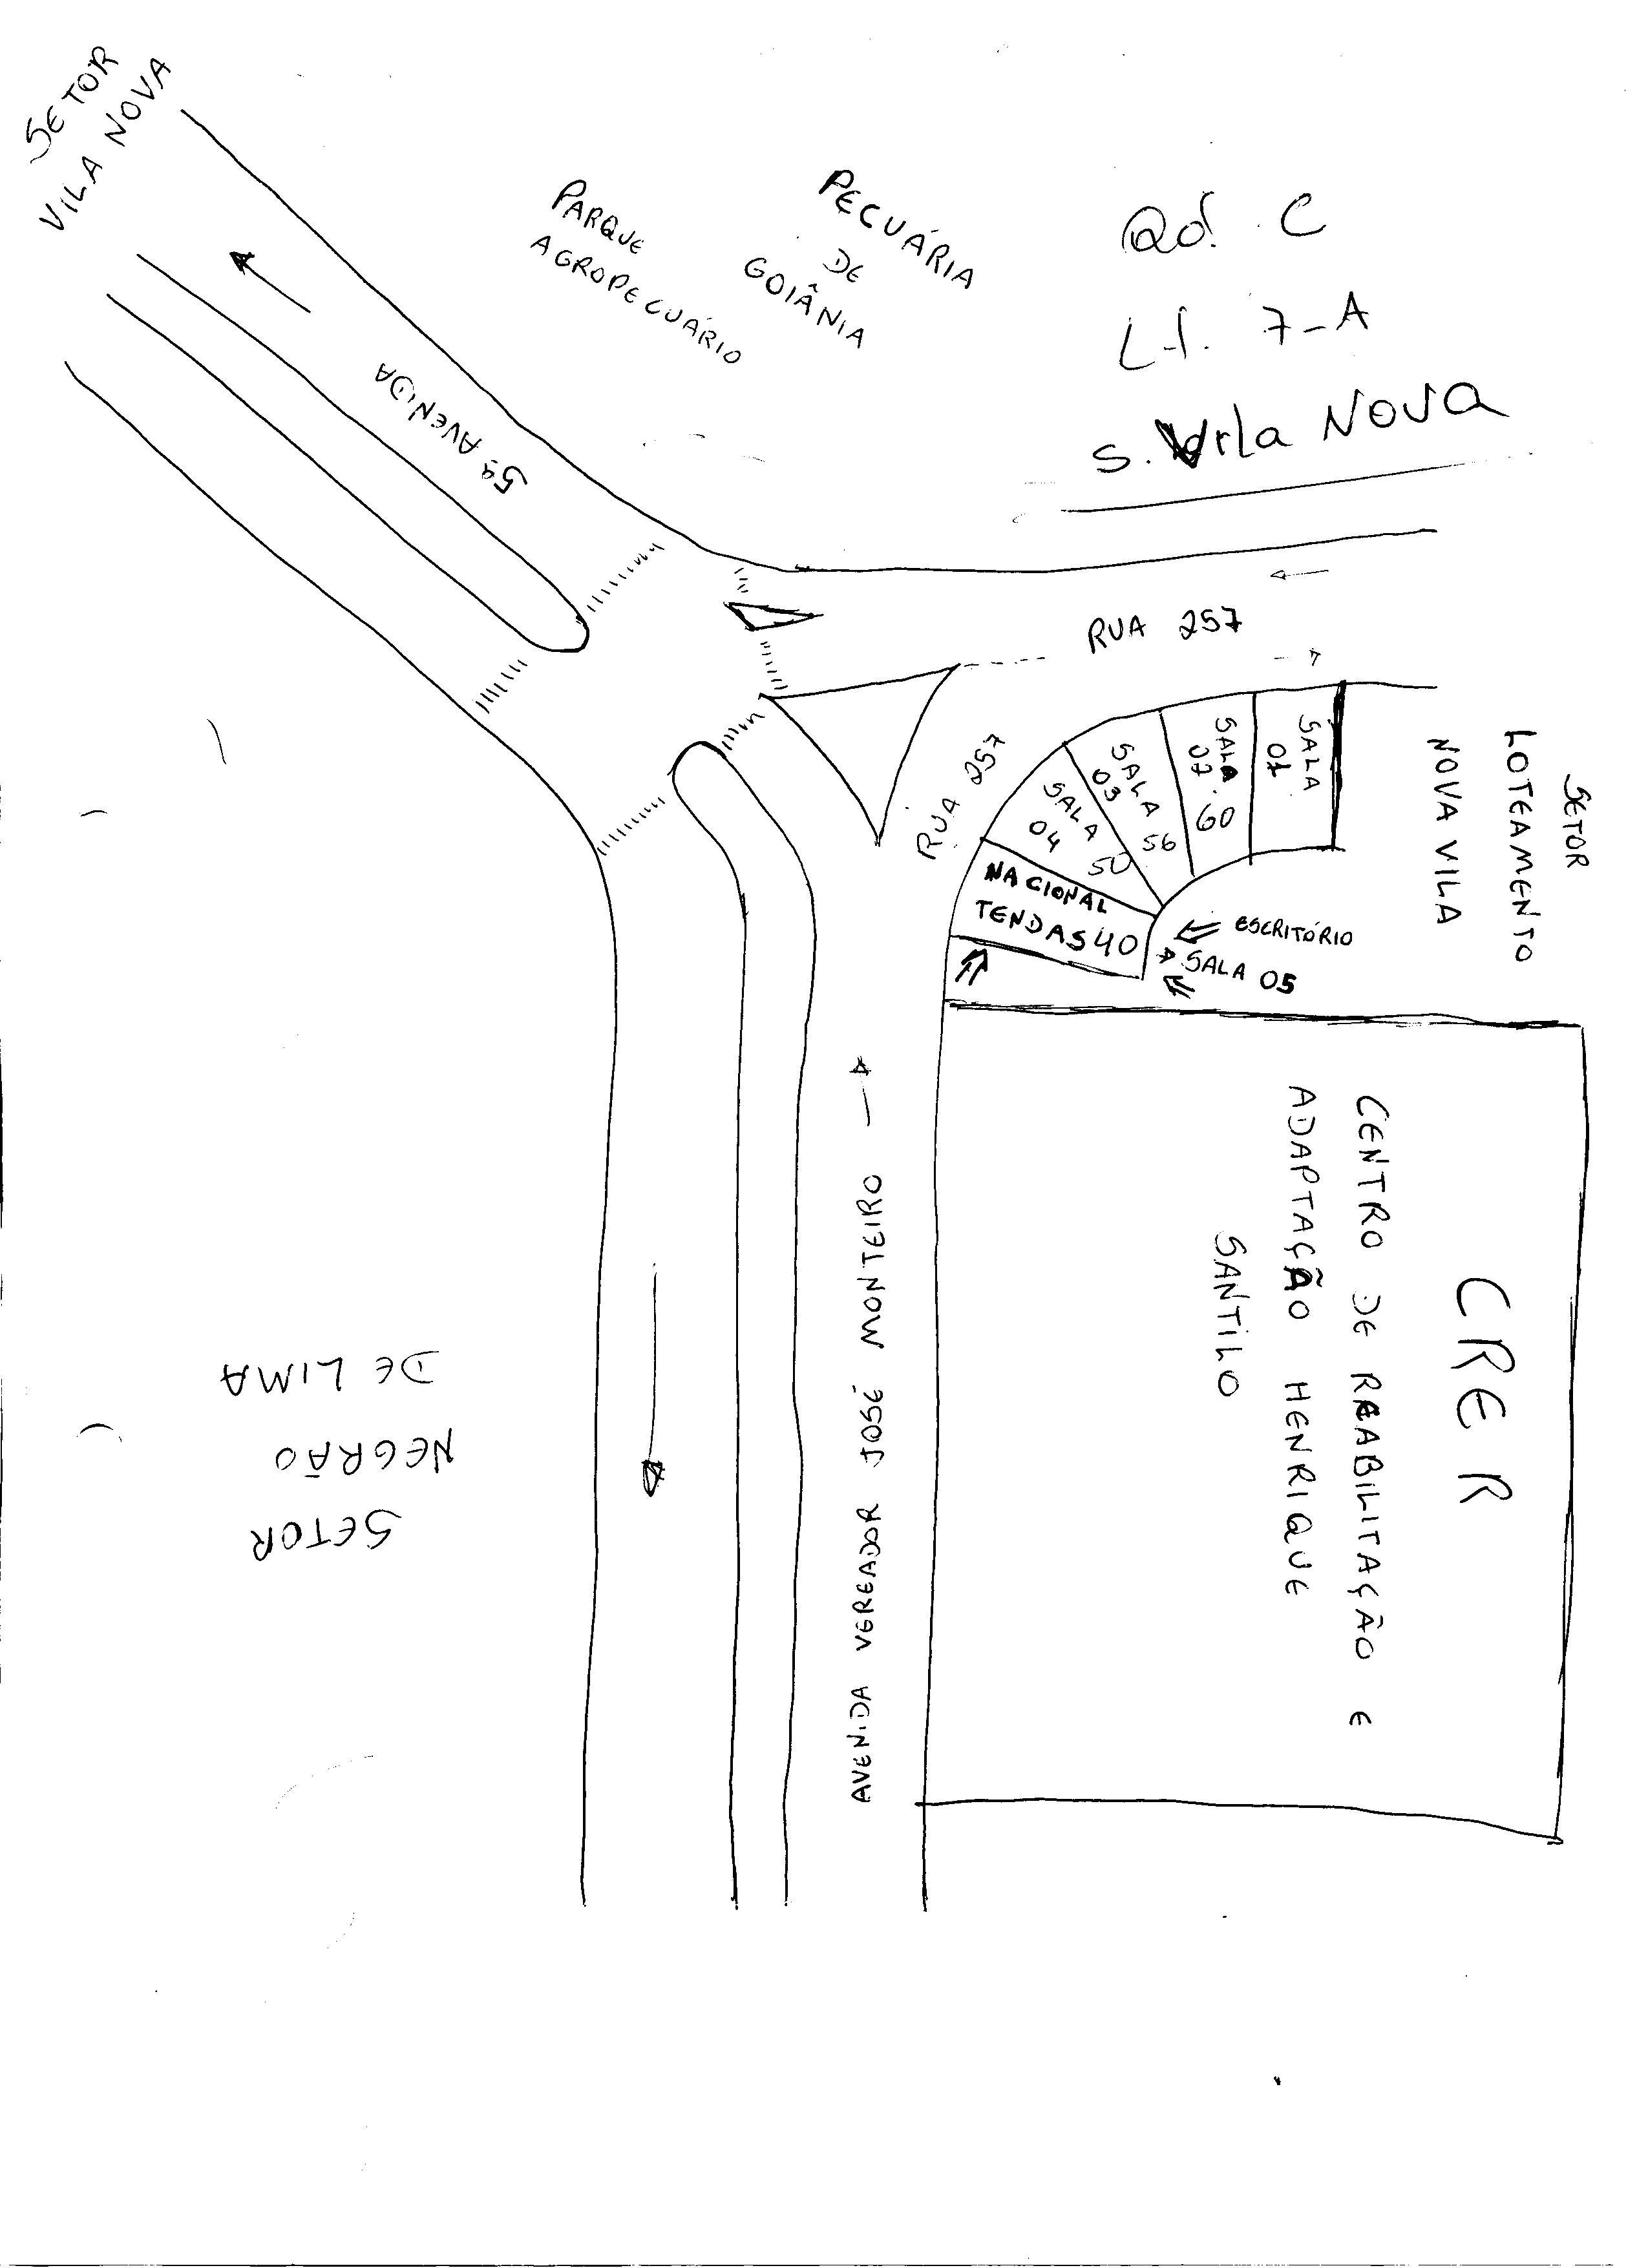 SETOR
VILA NOVA
PARQUE
AGROPECUÁRIO
PECUÁRIA
DE
GOIÂNIA
Qd. C
Lt. 7-A
S. Vila NOVA
5ª AVENIDA
RUA 257
RUA 257
SALA
01
SALA
02
60
SALA
03
56
SALA
04
50
NACIONAL
TENDAS 40
ESCRITÓRIO
SALA 05
SETOR
LOTEAMENTO
NOVA VILA
CRER
CENTRO DE REABILITAÇÃO E
ADAPTAÇÃO HENRIQUE
SANTILO
AVENIDA VEREADOR JOSÉ MONTEIRO
SETOR
NEGRÃO
DE LIMA